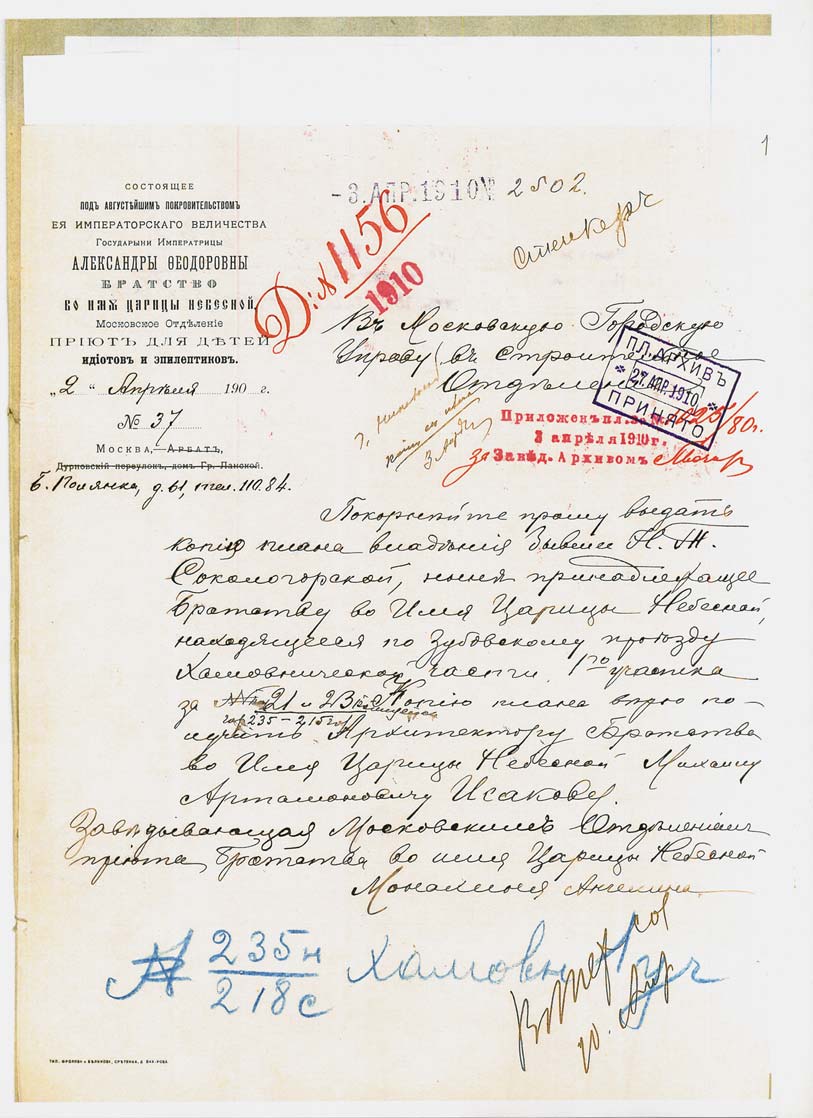 1
СОСТОЯЩЕЕ
ПОДЪ АВГУСТѢЙШИМЪ ПОКРОВИТЕЛЬСТВОМЪ
ЕЯ ИМПЕРАТОРСКАГО ВЕЛИЧЕСТВА
ГОСУДАРЫНИ ИМПЕРАТРИЦЫ
АЛЕКСАНДРЫ ѲЕОДОРОВНЫ
БРАТСТВО
ВО ИМЯ ЦАРИЦЫ НЕБЕСНОЙ.
МОСКОВСКОЕ ОТДѢЛЕНІЕ
ПРІЮТЪ ДЛЯ ДѢТЕЙ
ИДІОТОВЪ И ЭПИЛЕПТИКОВЪ.
„2" Апрѣля 190 г.
№ 37
МОСКВА, АРБАТЪ,
Дурновскій переулокъ, домъ Гр. Ланской.
Б. Полянка, д. 61, тел. 110.84.
-3.АПР.1910 № 2502.
Д: № 1156
1910
Въ Московскую Городскую
Управу (въ Строительное
Отдѣленіе
ПЛ. АРХИВЪ
* 27 АПР. 1910 *
ПРИНЯТО
Приложенъ пл. за №
3 апрѣля 1910 г.
за Завѣд. Архивомъ
Покорнѣйше прошу выдать
копію плана владѣнія бывшее Н. Т.
Сокологорской, нынѣ принадлежащее
Братству во Имя Царицы Небесной,
находящееся по Зубовскому проѣзду
Хамовнической части 1го участка
за 21 и 23
235 – 215 Копію плана вѣрю по-
лучить Архитектору Братства
во Имя Царицы Небесной Михаилу
Артамоновичу Исакову.
Завѣдывающая Московскимъ Отдѣленіемъ
пріюта Братства во имя Царицы Небесной
Монахиня Ангелина
№ 235н
218с
Хамовн 1 уч
ТИП. ФРОЛОВА и БѢЛИКОВА, СРѢТЕНКА, Д.